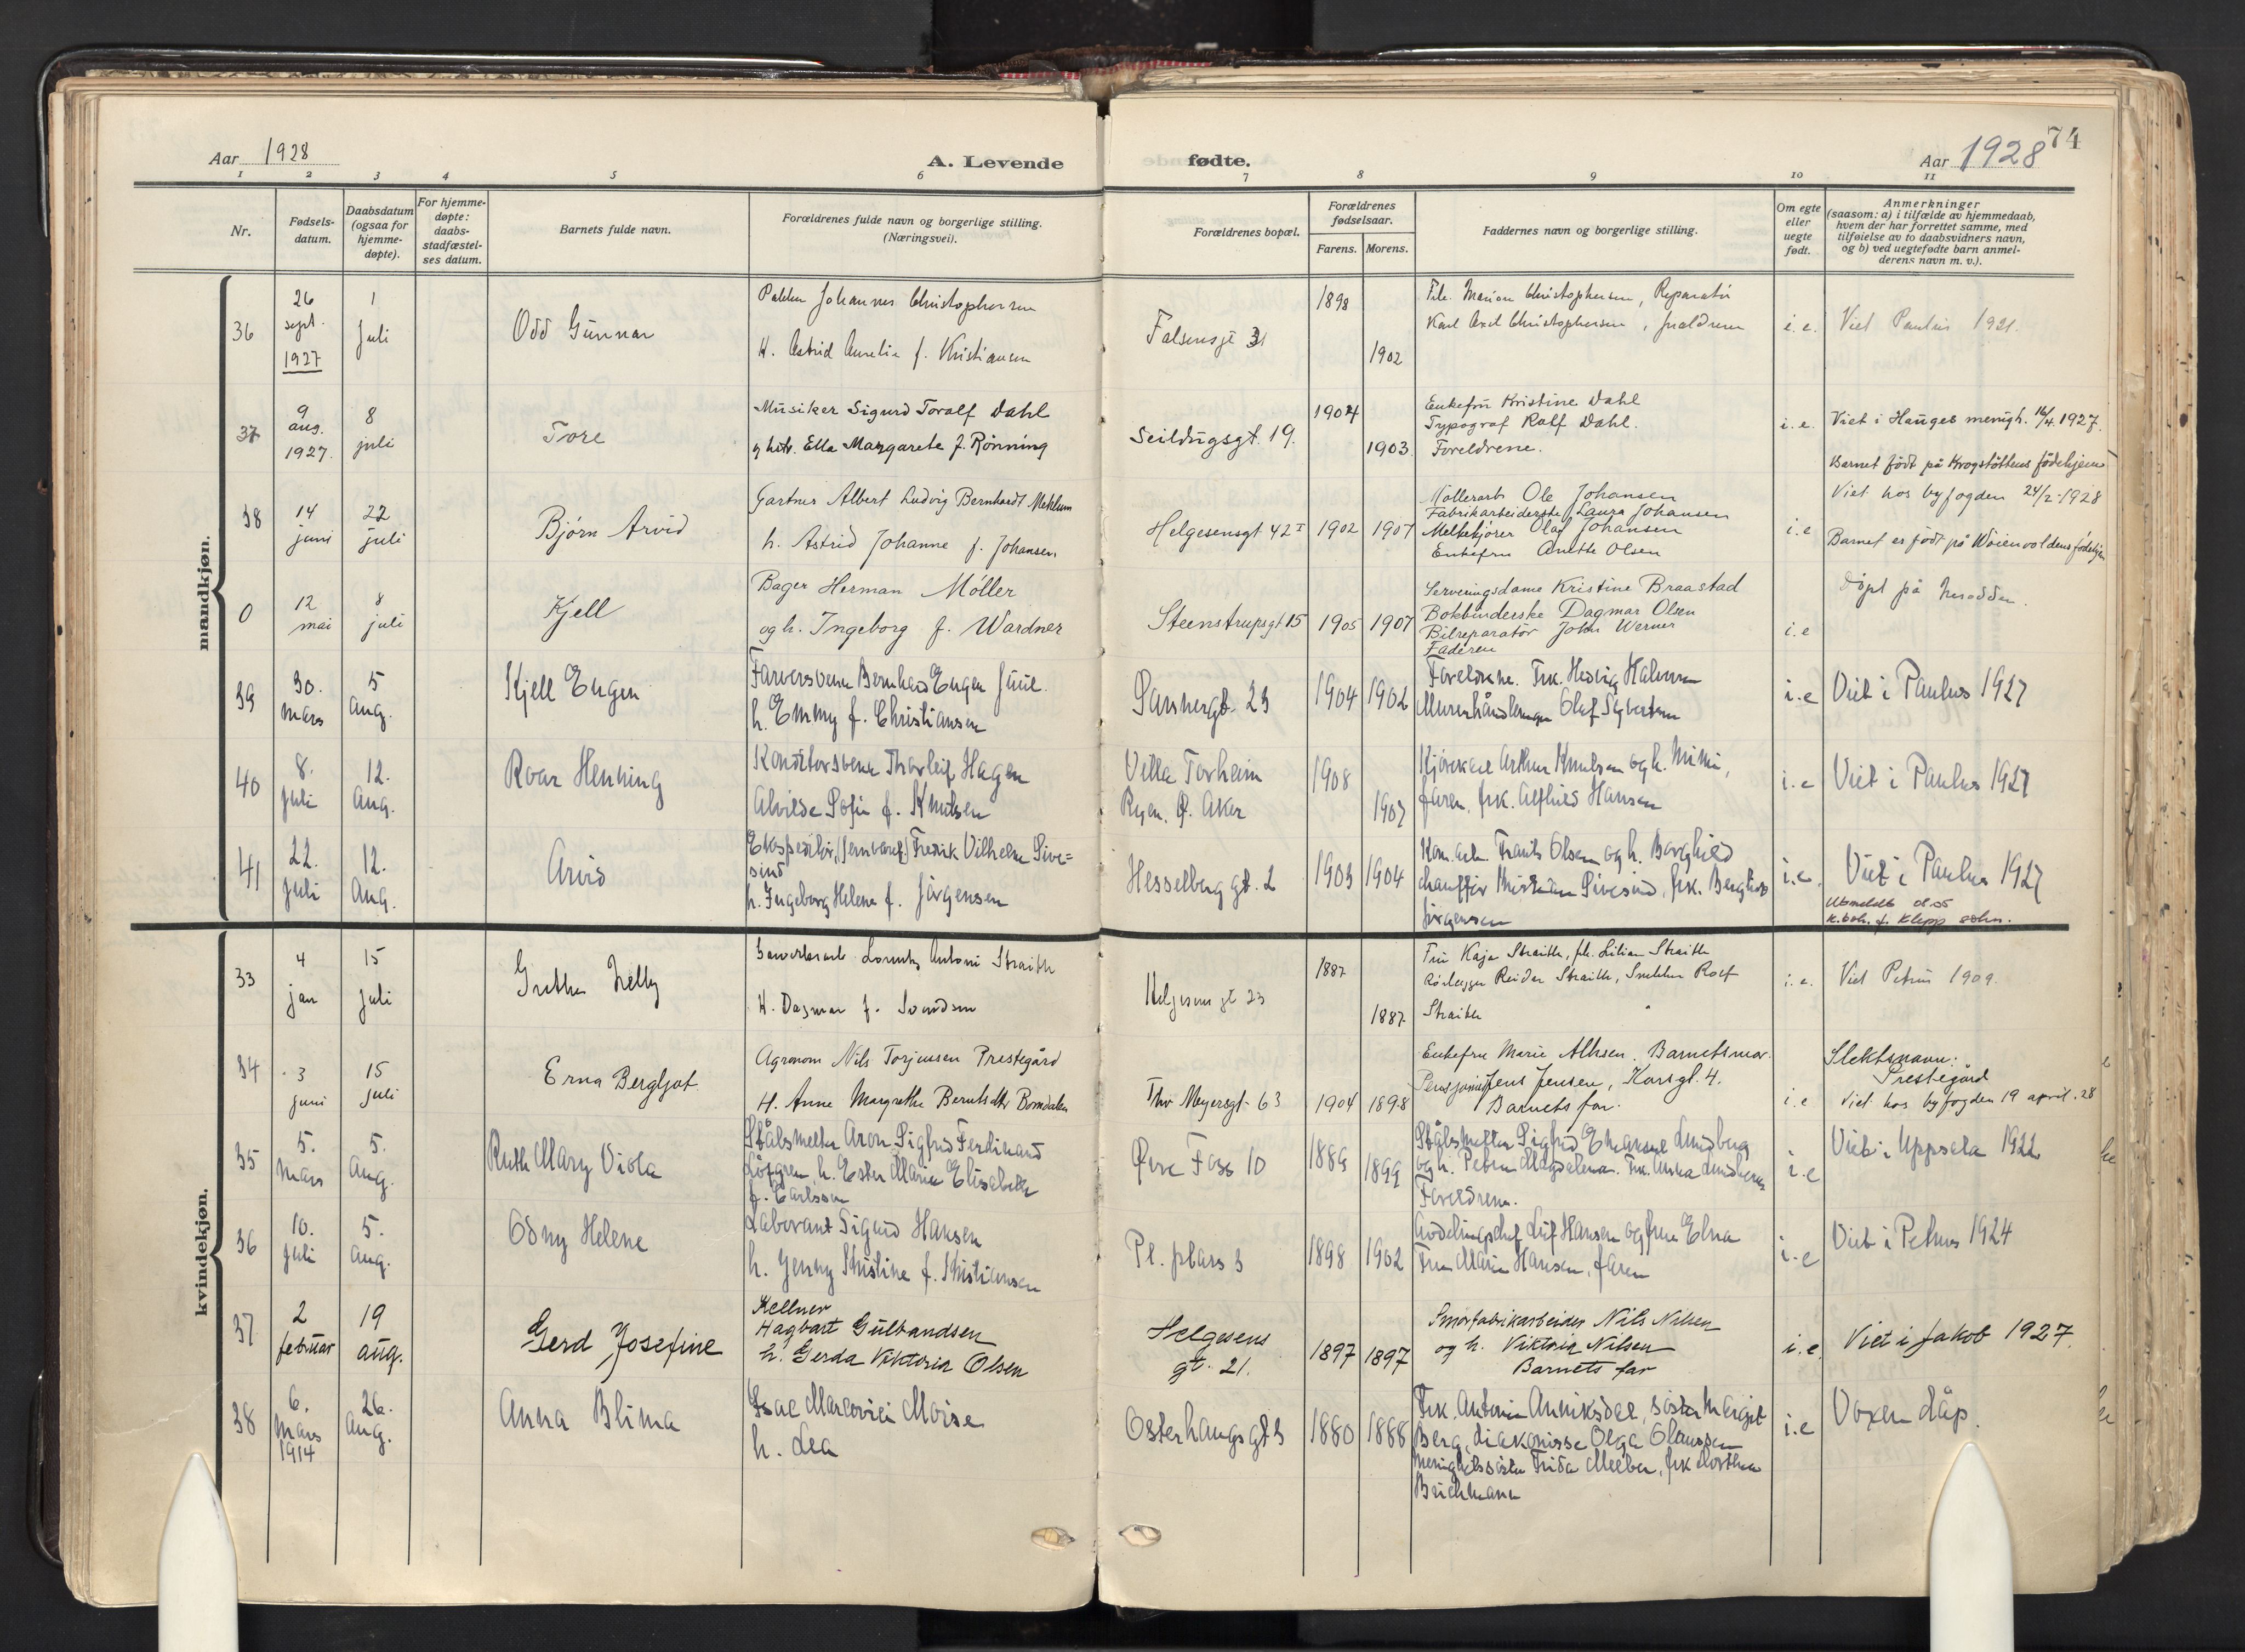 Aar 1928
A. Levende
fødte.
74
Aar 1928
1 2 3 4 5 6 7 8 9 10 11
Nr.
Fødsels-
datum.
Daabsdatum
(ogsaa for
hjemme-
døpte).
For hjemme-
døpte:
daabs-
stadfæstel-
ses datum.
Barnets fulde navn.
Forældrenes fulde navn og borgerlige stilling.
(Næringsvei).
Forældrenes bopæl.
Forældrenes
fødselsaar.
Farens. Morens.
Faddernes navn og borgerlige stilling.
Om egte
eller
uegte
født.
Anmerkninger
(saasom: a) i tilfælde av hjemmedaab,
hvem der har forrettet samme, med
tilføielse av to daabsvidners navn,
og b) ved uegtefødte barn anmel-
derens navn m. v.).
mandkjøn.
36
26
sept.
1927
1
juli
Odd Gunnar
Pakker Johannes Christophersen
H. Astrid Aurelia f. Kristiansen
Falsensgt 31
1898
1902
Marion Christophersen, Reparatør
Karl Axel Christophersen, foreldrene
i.e.
Viet Paulus 1921.
37
9
aug.
1927.
8
juli
Tore
Musiker Sigurd Toralf Dahl
og hstr. Ella Margarete f. Rönning
Seildugsgt. 19.
1904
1903.
Enkefru Kristine Dahl
Typograf Rolf Dahl.
Foreldrene.
i.e.
Viet i Hauges menigh. 16/4. 1927.
Barnet födt på Krogstöttens födehjem
38
14
juni
22
juli
Bjørn Arvid
Gartner Albert Ludvig Bernhardt Mehlum
h. Astrid Johanne f. Johansen
Helgesensgt 42 I
1902 1907
Möllerarb. Ole Johansen
Fabrikarbeiderske Laura Johansen
Melkekjører Olaf Johansen
Enkefru Anette Olsen
i.e
Viet hos byfogden 24/2-1928
Barnet er født på Wöienvoldens fødehjem
0
12
mai
8
juli
Kjell
Bager Herman Möller
og h. Ingeborg f. Wardner
Steenstrupsgt 15
1905 1907
Serveringsdame Kristine Braastad
Bokbinderske Dagmar Olsen
Bilreparatör John Werner
Faderen
i.e
Döpt på Nesodden.
39
30.
Mars
5
Aug.
Kjell Eugen
Farversvenn Bernhard Eugen Juul.
h. Emmy f. Christiansen
Sannergt. 23
1904 1902
Foreldrene. Frk. Hedvig Halvorsen
Murerhåndlanger Olaf Syvertsen
i.e
Viet i Paulus 1927
40
8.
Juli
12.
Aug.
Roar Henning
Konditorsvenn Thorleif Hagen
Alvilde Sofie f. Knutsen
Villa Torheim
Ryen. Ø. Aker
1908
1907
Arthur Knutsen og h. Mimi,
faren, frk. Alfhild Hansen
i.e
Viet i Paulus 1927
41
22.
Juli
12.
Aug.
Arvid
Ekspeditör, (jernvaref.) Fredrik Vilhelm Sive=
sind
h. Ingeborg Helene f. Jörgensen
Hesselberg gt. 2
1903 1904
Kom.arb. Frants Olsen og h. Borghild
chauffør Kristian Sivesind, frk. Bergliot
Jörgensen
i.e.
Viet i Paulus 1927
Utmeldt
kvindekjøn.
33
4
jan
15
juli
Grethe Nelly
Lorentz Antoni Straith
H. Dagmar f. Svendsen
Helgesens gt 23
1887
1887
Fru Kaja Straith, frk. Lilian Straith
Rörlegger Reidar Straith, Snekker Rolf
Straith
i.e.
Viet Petrus 1909.
34
3
juni
15
juli
Erna Bergljot
Agronom Nils Torjussen Prestegård
H. Anne Margrethe Berntsdtr Bomdalen
Thv Meyersgt 63
1904 1898
Enkefru Marie Alhsen. Barnets mor.
Pensjonist Jens Jensen, Korsgt. 4.
Barnets far.
i.e
Slektsnavn:
Prestegård
Viet hos byfogden 19 april. 28
35
5.
Mars
5.
Aug.
Ruth Mary Viola
Stålsmelter Aron Sigfrid Ferdinand
Löfgren, h. Ester Maria Elisabeth
f. Carlsson
Øvre Foss 10
1889 1899
Stålsmelter Sigfrid Emanuel Lundberg
og h. Petra Magdalena. Frk. Anna Lundberg
Foreldrene.
i.e
Viet i Uppsala 1922
36
10.
Juli
5.
Aug.
Odny Helene
Laborant Sigurd Hansen
h. Jenny Kristine f. Kristiansen
Pl. plass 3
1898 1902
Avdelingschef Leif Hansen og frue Elna
Fru Marie Hansen, faren
i.e
Viet i Petrus 1924
37
2
februar
19
aug.
Gerd Josefine
Kellner
Hagbart Gulbrandsen
h. Gerda Viktoria Olsen
Helgesens
gt. 21.
1897 1897
Smörfabrikarbeider Nils Nilsen
og h. Viktoria Nilsen
Barnets far
i.e.
Viet i Jakob 1927.
38
6.
Mars
1914
26.
Aug.
Anna Blima
Isac Marcovici Moise
h. Lea
Osterhaugsgt 3
1880 1888
Frk. Antonie Anniksdal, söster Margit
Berg, diakonisse Olga Olaussen
menighetssöster Frida Melbye, frk Dorthea
Brichmann
i.e
Voxen dåp.